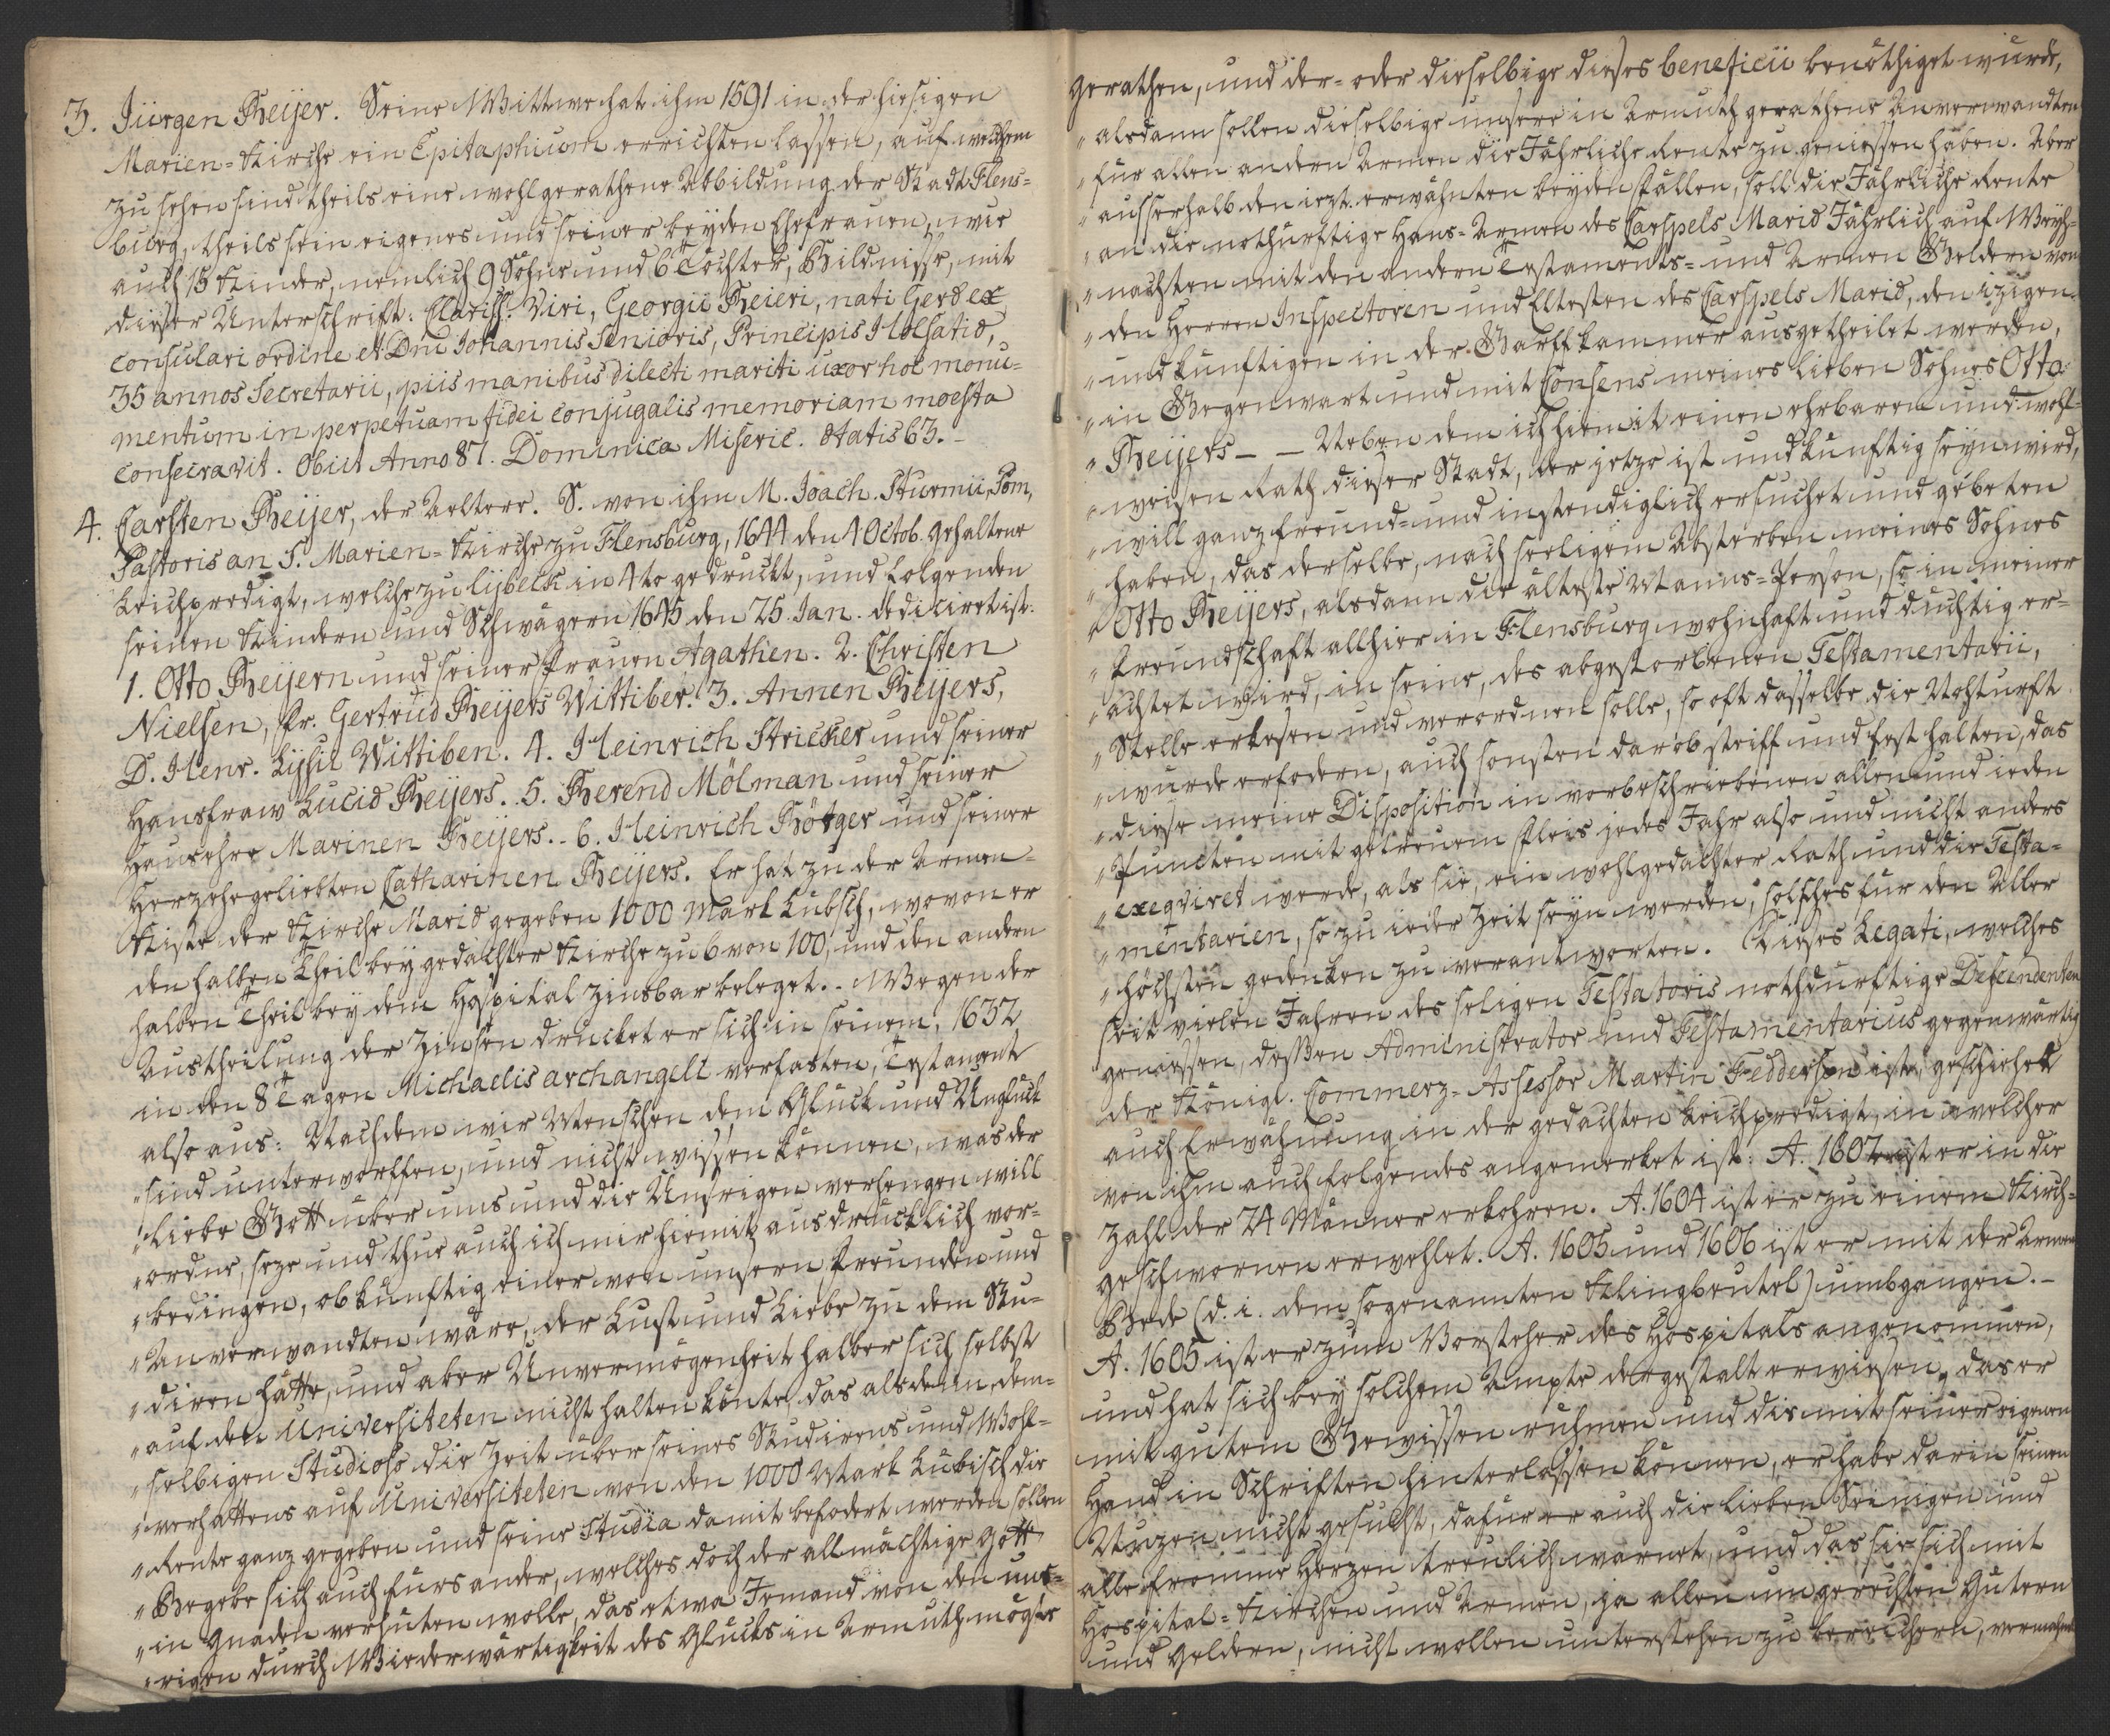 3. Jürgen Beijer. Seine Wittwe hat ihm 1591 in der hiesigen
Marien-Kirche ein Epitaphium errichten lassen, auf welchem
zu sehen sind theils eine wohlgerathene Abbildung der Stadt Flens-
burg, theils sein eigenes und seiner beyden Ehefrauen, wie
auch 15 Kinder, nemlich 9 Söhne und 6 Töchter, Bildnisse, mit
dieser Unterschrift: Clariss. Viri, Georgii Beieri, nati Gerd ex
consulari ordine et Dni Johannis Senioris, Principis Holsatiæ,
35 annos Secretarii, piis manibus dilecti mariti uxor hoc monu-
mentum in perpetuam fidei conjugalis memoriam moesta
consecravit. Obiit Anno 87. Dominica Miseric. ætatis 63. -
4. Carsten Beijer, der Aeltere. S. von ihm M. Joach. Sturmii, Pom,
Pastoris an S. Marien-Kirche zu Flensburg, 1644 den 4 Octob. gehaltene
Leichpredigt, welche zu Lijbeck in 4to gedruckt, und folgenden
seinen Kindern und Schwägern 1645 den 25. Jan. dediciret ist:
1. Otto Beijern und seiner Frauen Agathen. 2. Christen
Nielsen, Fr. Gertrud Beijers Wittiber. 3. Annen Beijers,
D. Henr. Lijsii Wittiben. 4. Heinrich Stricker und seiner
Hausfraw Luciæ Beijers. 5. Berend Mölman und seiner
Hausehre Marinen Beijers. - 6. Heinrich Bötger und seiner
Herzehegeliebten Catharinen Beijers. Er hat zu der Armen-
Kiste der Kirche Mariæ gegeben 1000 Mark Lübsch, wovon er
den halben Theil bey gedachter Kirche zu 6 von 100, und den andern
halben Theil bey dem Hospital zinsbar beleget. - Wegen der
Austheilung der Zinsen drücket er sich in seinem, 1632
in den 8 Tagen Michaelis archangeli verfasten, Testament
also aus: Nachdem wir Menschen dem Glück und Unglück
„ sind unterworffen, und nicht wissen können, was der
„ Liebe Gott über uns und die Unsrigen verhengen will
„ ordne, seze und thue auch ich mir hiemit ausdrücklich vor-
„ bedingen, ob künftig einer von unsern Freunden und
„ Anverwandten wäre, der Lust und Liebe zu dem Stu-
„ diren hätte, und aber Unvermögenheit halber sich selbst
„ auf den Universiteten nicht halten könte, das alsdenn dem-
„ selbigen Studioso die Zeit über seines Studirens und Wohl-
„ verhaltens auf Universiteten von den 1000 Mark Lübisch die
„ Rente ganz gegeben und seine Studia damit befodert werden sollen
„ Begebe sich auch fürs ander, welches doch der allmächtige Gott
„ in Gnaden verhüten wolle, das etwa Jemand von den uns-
„ rigen durch Wiederwärtigkeit des Glücks in Armuth mögte
gerathen, und der- oder dieselbige dieses beneficii benöthiget würde,
„ alsdann sollen dieselbige unsere in Armuth gerathene Anverwandten
„ für allen andern Armen die Jährliche Rente zu geniessen haben. Aber
„ ausserhalb den iezt erwähnten beyden Fällen, soll die Jährliche Rente
„ an die nothürftige Haus-Armen des Carspels Mariæ Jährlich auf Weyh-
„ nachten mit den andern Testaments- und Armen Geldern von
„ den Herren Inspectoren und Eltesten des Carspels Mariæ, den izigen
„ und künftigen in der Garffkammer ausgetheilet werden,
„ in Gegenwart und mit Consens meines lieben Sohnes Otto
„ Beijers - - Neben dem ich hiemit einen ehrbaren und wohl-
„ weisen Rath dieser Stadt, der jetze ist und künftig seyn wird,
„ will ganz freund- und instendiglich ersuchet und gebeten
„ haben, das derselbe, nach seeligem Absterben meines Sohnes
„ Otto Beijers, alsdann die älteste Manns-Person, so in meiner
„ Freundschaft allhier in Flensburg wohnhaft und düchtig er-
„ achtet wird, in seine, des abgestorbenen Testamentarii,
„ Stelle erkesen und verordnen solle, so oft dasselbe die Nohturft
„ würde erfodern, auch sonsten darob steiff und fest halten, das
„ diese meine Disposition in vorbeschriebenen allen und ieden
„ Puncten mit getreuem Fleis jedes Jahr also und nicht anders
„ exeqviret werde, als sie, ein wohlgedachter Rath und die Testa-
„ mentarien, so zu ieder Zeit seyn werden, solches für den Aller
„ höchsten gedenken zu verantworten. Dieses Legati, welches
seit vielen Jahren des seligen Testatoris nothdürftige Descendenten
geniessen, dessen Administrator und Testamentarius gegenwärtig
der Königl. Commerz-Assessor Martin Feddersen ist, geschiehet
auch Erwähnung in der gedachten Leichpredigt, in welcher
von ihm auch folgendes angemerket ist: A. 1602 ist er in die
Zahl der 24 Männer erkohren. A. 1604 ist er zu einem Kirch-
geschwornen erwehlet. A. 1605 und 1606 ist er mit der Armen
Bede (d. i. dem sogenannten Klingbeutel) umbgangen. -
A. 1605 ist er zum Vorsteher des Hospitals angenommen,
und hat sich bey solchem Ampte dergestalt erwiesen, das er
mit gutem Gewissen rühmen und dis mit seiner eigenen
Hand in Schriften hinterlassen können, er habe darin seinen
Nuzen nicht gesucht, dafür er auch die lieben Seinigen und
alle fromme Herzen treulich warnet, und das sie sich mit
Hospital-Kirchen und Armen, ja allen ungerechten Gütern
und Geldern, nicht wollen unterstehen zu bereichern, vermahnet